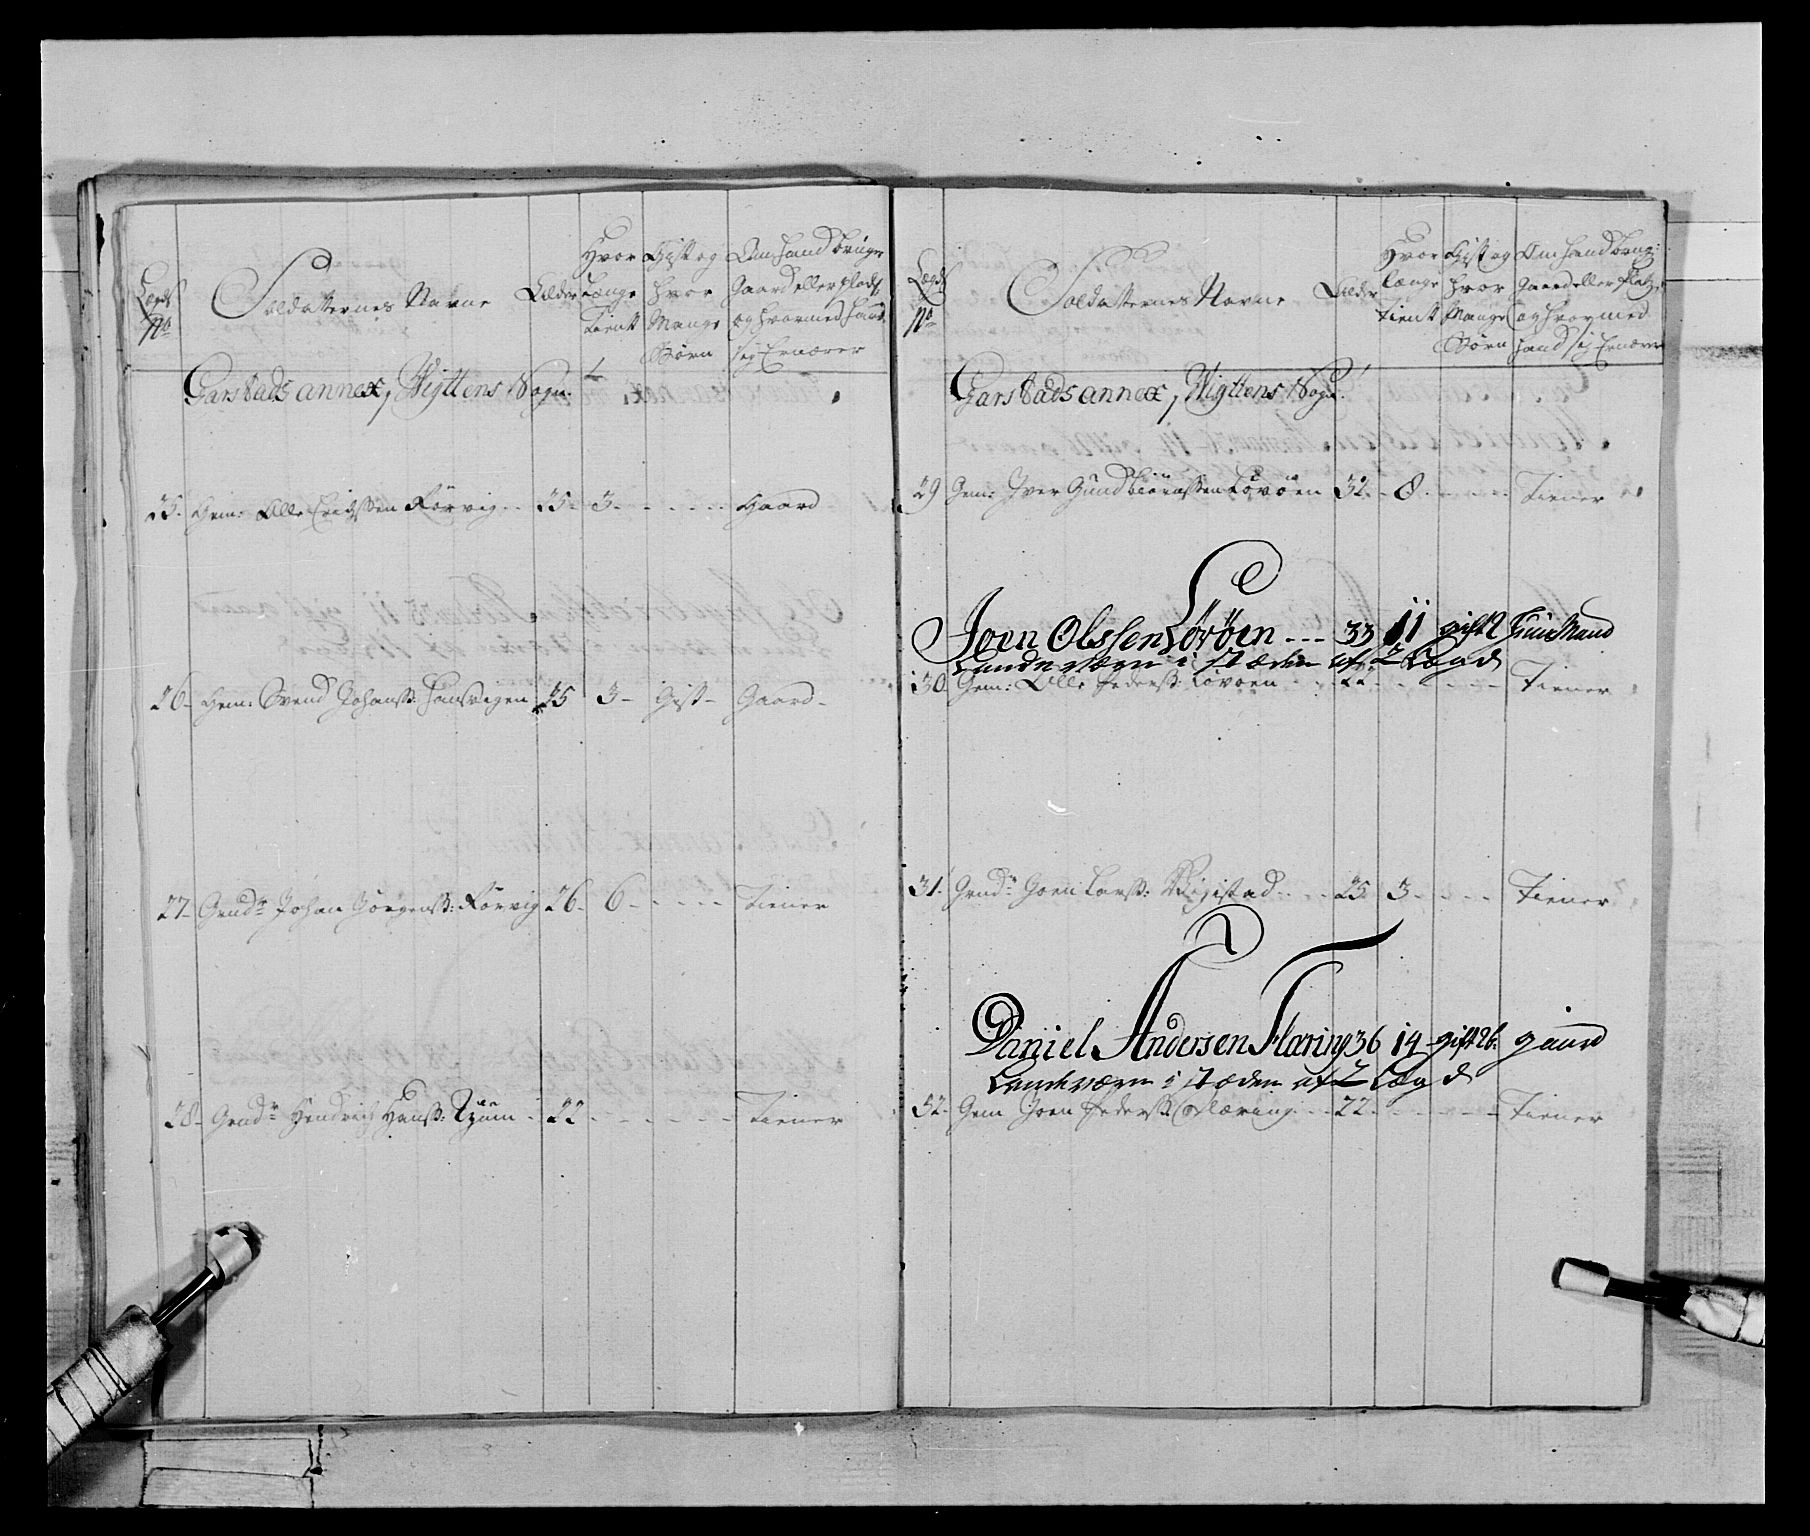 Lægds No
Soldatternes Navne
Alder
Hvor Længe Tient
Gift og hvor Mange Børn
Om hand bruger Gaard eller plads og hvormed hand sig Ernærer
Garstads annex, Nigttens Sogn.
25. Gem: Olle Erichssen Rörvig 25 3 Gaard
26 Gem: Svend Johanss: 25 3 Gift Gaard
27 Grndr Johan Jörgenss: Rörvig 26 6 Tiener
28 Grndr Hendrich Hanss: 22 Tiener
Lægds No
Soldatternes Navne
Alder
Hvor længe Tient
Gift og hvor Mange Børn
Om hand brug: Gaard eller Platz, og hvormed hand sig Ernærer
Garstads annex, Nigttens Sogn.
29 Gem: Iver Gundbiörnssen Lövöen 32 8 Tiener
Joen Olssen Löröen 33 11 gift 2 Huus Mand
Landeværn i stæden af 2 Lægd
30 Gem: Olle Pederss: Lövöen 22 Tiener
31. Grndr Joen Larss: 25 3 Tiener
Daniel Andersen Flæring 36 14 gift 2 b: gaard
Landeværn i stæden af 2 Lægd
32. Gem Joen Pederss: Flæring 22 Tiener